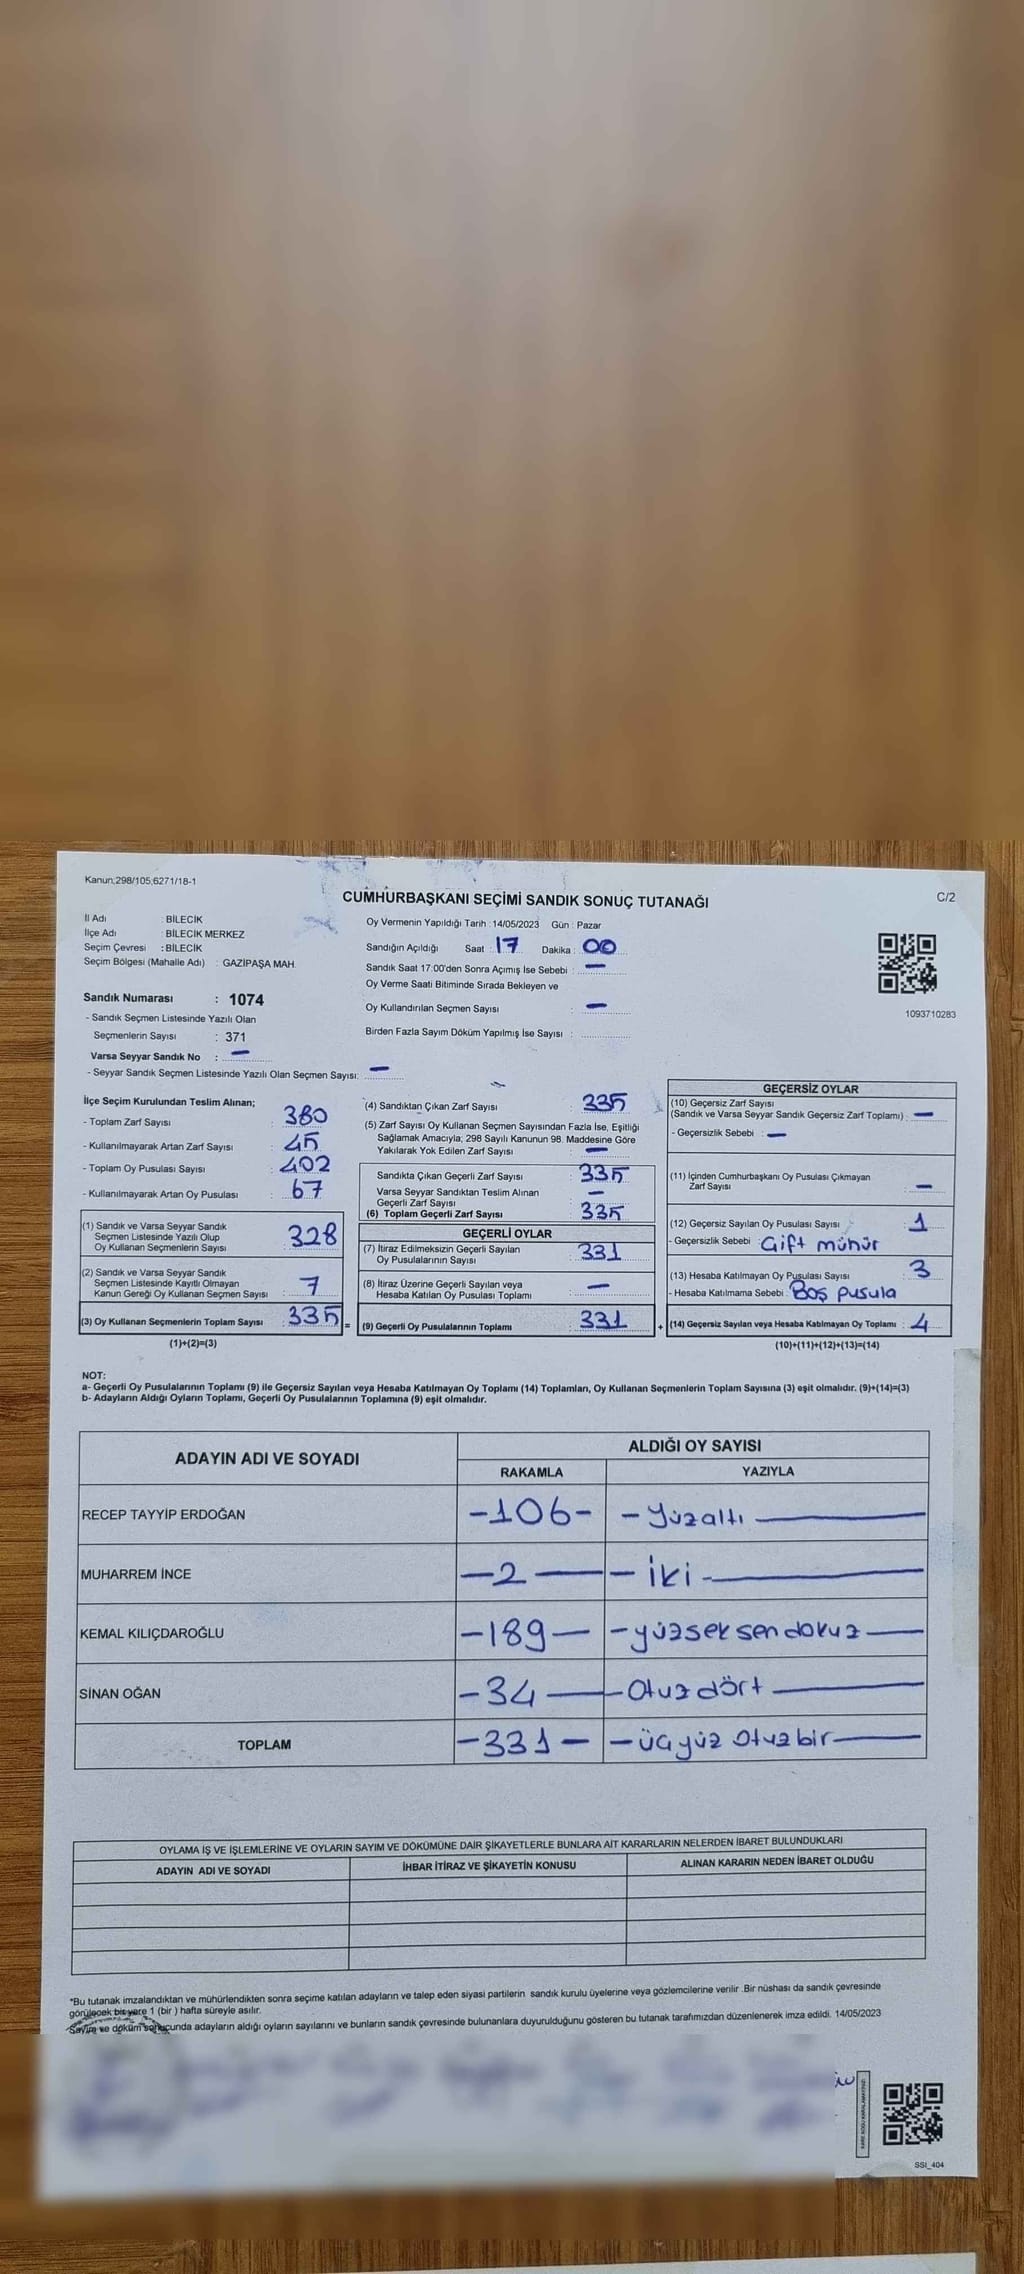 Kanun;298/105,6271/18-1
CUMHURBAŞKANI SEÇİMİ SANDIK SONUÇ TUTANAĞI
C/2
İl Adı : BİLECİK
İlçe Adı : BİLECİK MERKEZ
Seçim Çevresi : BİLECİK
Seçim Bölgesi (Mahalle Adı) : GAZİPAŞA MAH.
Sandık Numarası : 1074
- Sandık Seçmen Listesinde Yazılı Olan
Seçmenlerin Sayısı : 371
Varsa Seyyar Sandık No : —
- Seyyar Sandık Seçmen Listesinde Yazılı Olan Seçmen Sayısı: —
Oy Vermenin Yapıldığı Tarih : 14/05/2023 Gün : Pazar
Sandığın Açıldığı Saat : 17 Dakika : 00
Sandık Saat 17:00'den Sonra Açımış İse Sebebi : —
Oy Verme Saati Bitiminde Sırada Bekleyen ve
Oy Kullandırılan Seçmen Sayısı : —
Birden Fazla Sayım Döküm Yapılmış İse Sayısı :
1093710283
İlçe Seçim Kurulundan Teslim Alınan;
- Toplam Zarf Sayısı : 380
- Kullanılmayarak Artan Zarf Sayısı : 45
- Toplam Oy Pusulası Sayısı : 402
- Kullanılmayarak Artan Oy Pusulası : 67
(1) Sandık ve Varsa Seyyar Sandık
Seçmen Listesinde Yazılı Olup
Oy Kullanan Seçmenlerin Sayısı : 328
(2) Sandık ve Varsa Seyyar Sandık
Seçmen Listesinde Kayıtlı Olmayan
Kanun Gereği Oy Kullanan Seçmen Sayısı : 7
(3) Oy Kullanan Seçmenlerin Toplam Sayısı : 335 =
(1)+(2)=(3)
(4) Sandıktan Çıkan Zarf Sayısı : 335
(5) Zarf Sayısı Oy Kullanan Seçmen Sayısından Fazla İse, Eşitliği
Sağlamak Amacıyla; 298 Sayılı Kanunun 98. Maddesine Göre
Yakılarak Yok Edilen Zarf Sayısı : —
Sandıkta Çıkan Geçerli Zarf Sayısı : 335
Varsa Seyyar Sandıktan Teslim Alınan
Geçerli Zarf Sayısı : —
(6) Toplam Geçerli Zarf Sayısı : 335
GEÇERLİ OYLAR
(7) İtiraz Edilmeksizin Geçerli Sayılan
Oy Pusulalarının Sayısı : 331
(8) İtiraz Üzerine Geçerli Sayılan veya
Hesaba Katılan Oy Pusulası Toplamı : —
(9) Geçerli Oy Pusulalarının Toplamı : 331 +
GEÇERSİZ OYLAR
(10) Geçersiz Zarf Sayısı
(Sandık ve Varsa Seyyar Sandık Geçersiz Zarf Toplamı) : —
- Geçersizlik Sebebi : —
(11) İçinden Cumhurbaşkanı Oy Pusulası Çıkmayan
Zarf Sayısı : —
(12) Geçersiz Sayılan Oy Pusulası Sayısı : 1
- Geçersizlik Sebebi : Çift mühür
(13) Hesaba Katılmayan Oy Pusulası Sayısı : 3
- Hesaba Katılmama Sebebi : Boş pusula
(14) Geçersiz Sayılan veya Hesaba Katılmayan Oy Toplamı : 4
(10)+(11)+(12)+(13)=(14)
NOT:
a- Geçerli Oy Pusulalarının Toplamı (9) ile Geçersiz Sayılan veya Hesaba Katılmayan Oy Toplamı (14) Toplamları, Oy Kullanan Seçmenlerin Toplam Sayısına (3) eşit olmalıdır. (9)+(14)=(3)
b- Adayların Aldığı Oyların Toplamı, Geçerli Oy Pusulalarının Toplamına (9) eşit olmalıdır.
ADAYIN ADI VE SOYADI ALDIĞI OY SAYISI
RAKAMLA YAZIYLA
RECEP TAYYİP ERDOĞAN -106- - Yüzaltı —
MUHARREM İNCE -2- - İki —
KEMAL KILIÇDAROĞLU -189- - yüzseksendokuz —
SİNAN OĞAN -34- - Otuzdört —
TOPLAM -331- - üçyüz otuzbir —
OYLAMA İŞ VE İŞLEMLERİNE VE OYLARIN SAYIM VE DÖKÜMÜNE DAİR ŞİKAYETLERLE BUNLARA AİT KARARLARIN NELERDEN İBARET BULUNDUKLARI
ADAYIN ADI VE SOYADI İHBAR İTİRAZ VE ŞİKAYETİN KONUSU ALINAN KARARIN NEDEN İBARET OLDUĞU
*Bu tutanak imzalandıktan ve mühürlendikten sonra seçime katılan adayların ve talep eden siyasi partilerin sandık kurulu üyelerine veya gözlemcilerine verilir .Bir nüshası da sandık çevresinde
görülecek bir yere 1 (bir ) hafta süreyle asılır.
Sayim ve döküm sonucunda adayların aldığı oyların sayılarını ve bunların sandık çevresinde bulunanlara duyurulduğunu gösteren bu tutanak tarafımızdan düzenlenerek imza edildi. 14/05/2023
SSI_404